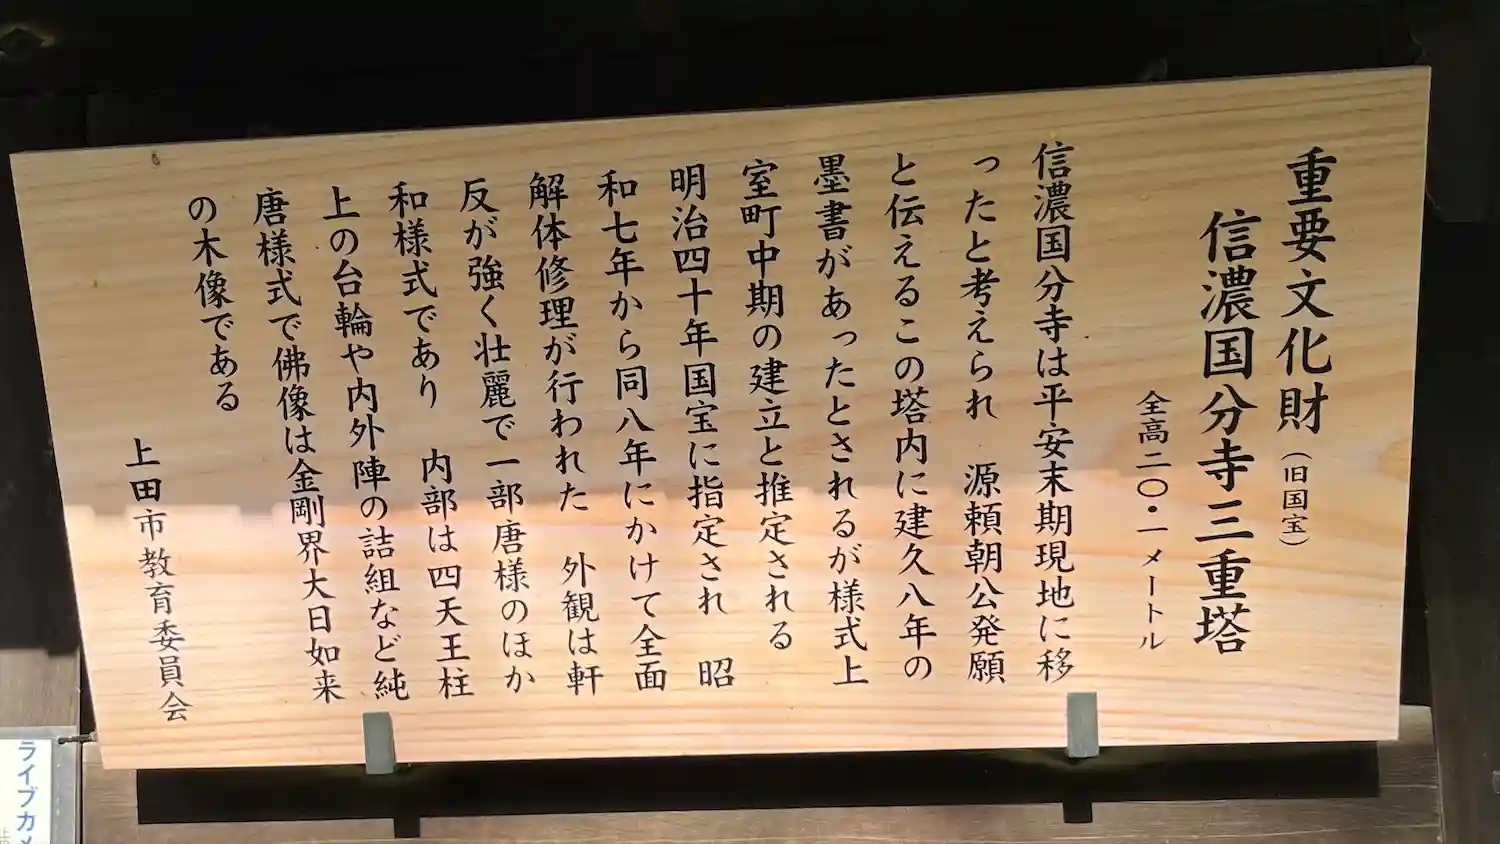 重要文化財(旧国宝)
信濃国分寺三重塔
全高二〇・一メートル
信濃国分寺は平安末期現地に移
ったと考えられ　源頼朝公発願
と伝えるこの塔内に建久八年の
墨書があったとされるが様式上
室町中期の建立と推定される
明治四十年国宝に指定され　昭
和七年から同八年にかけて全面
解体修理が行われた　外観は軒
反が強く壮麗で一部唐様のほか
和様式であり　内部は四天王柱
上の台輪や内外陣の詰組など純
唐様式で佛像は金剛界大日如来
の木像である
上田市教育委員会
ライブカメ